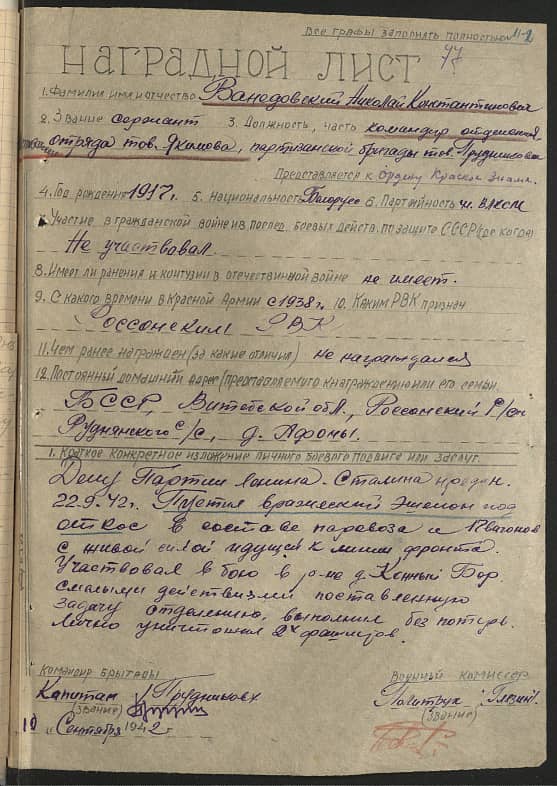 Все графы заполнять полностью
НАГРАДНОЙ ЛИСТ
1. Фамилия имя и отчество Ванодовский Николай Константинович
2. Звание сержант 3. Должность, часть командир отделения
отряда тов. Якимова, партизанской бригады тов. Прудникова
Представляется к Ордену Красное Знамя.
4. Год рождения 1917 г. 5. Национальность Белорус 6. Партийность чл. ВЛКСМ
Участие в гражданской войне и в послед. боевых действ. по защите СССР (где когда)
Не участвовал.
8. Имеет ли ранения и контузии в отечественной войне не имеет.
9. С какого времени в Красной Армии с 1938 г. 10. Каким РВК призван
Россонским РВК
11. Чем ранее награжден (за какие отличия) не награждался
12. Постоянный домашний адрес (представляемого к награждению) или его семьи.
БССР, Витебской обл., Россонский р/он
Руднянского с/с, д. Афоны.
1. Краткое конкретное изложение личного боевого подвига или заслуг.
Делу Партии Ленина - Сталина предан.
22.9.42 г. Пустил вражеский эшелон под
откос в составе паровоза и вагонов
с живой силой идущей к линии фронта.
Участвовал в бою в р-не д. Конный Бор.
смелыми действиями поставленную
задачу отделению, выполнил без потерь.
Лично уничтожил 2х фашистов.
Командир Брыгады
Капитан Прудников
(звание)
Сентября 1942 г.
Военный комиссар
Политрук
(звание)